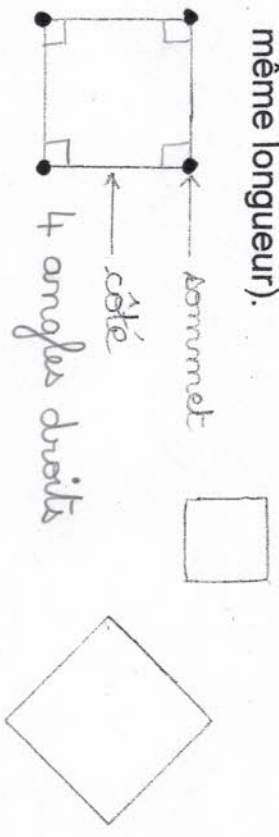 même longueur).
sommet
côté
4 angles droits